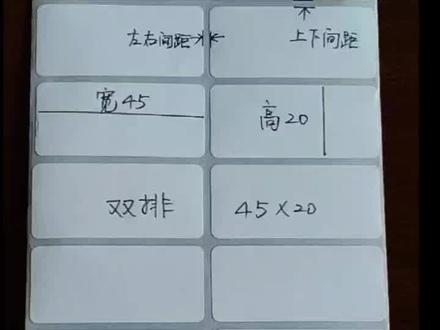 左右间距
上下间距
宽45
高20
双排
45×20